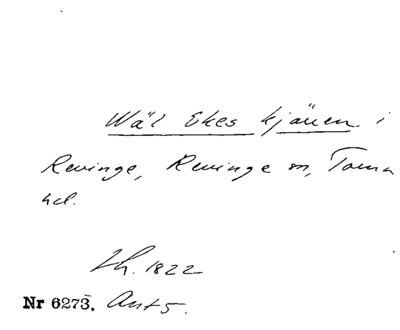 Wäl Ekes kjäuen i
Revinge, Revinge sn, Torna
hd.
Lh. 1822
Nr 6273. Ant 5.